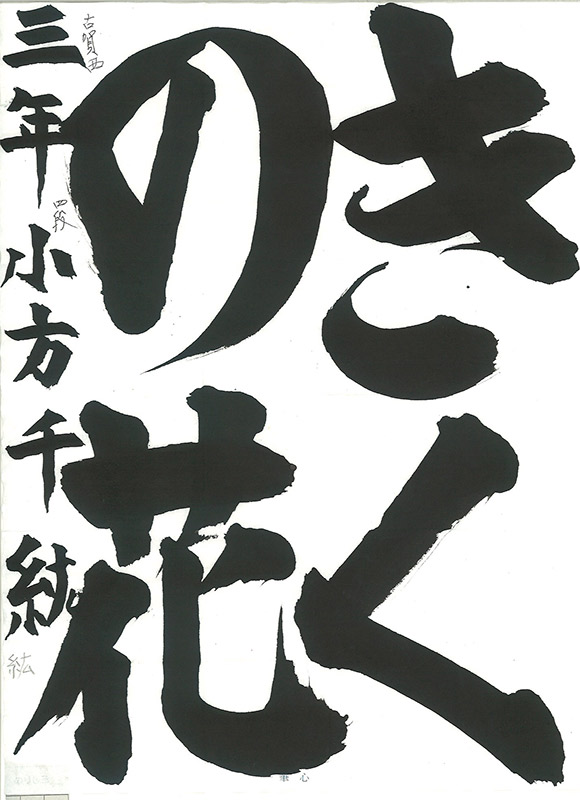 きく
の花
三年 小方千紘
古賀西
四段
紘